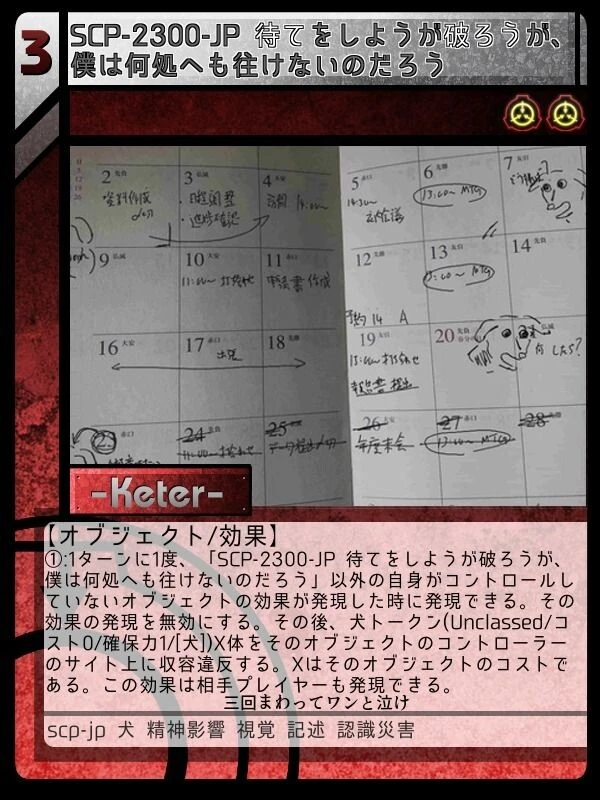 3
SCP-2300-JP 待てをしようが破ろうが、
僕は何処へも往けないのだろう
2 先負
3 仏滅
4 大安
5 赤口
6 先勝
7 友引
資料作成
・進捗確認
訪問 14:00~
13:00~ MTG
9 仏滅
10 大安
11 赤口
12 先勝
13 友引
14
11:00~ 打合せ
申請書作成
13:00~ MTG
16 大安
17 赤口
18 先勝
19 友引
20 先負
出張
報告書 提出
何したら?
23 赤口
24
25
26
27
28
11:00~ 打合せ
年度末会
13:00~ MTG
-Keter-
【オブジェクト/効果】
①:1ターンに1度、「SCP-2300-JP 待てをしようが破ろうが、
僕は何処へも往けないのだろう」以外の自身がコントロールし
ていないオブジェクトの効果が発現した時に発現できる。その
効果の発現を無効にする。その後、犬トークン(Unclassed/コ
スト0/確保力1/[犬])X体をそのオブジェクトのコントローラー
のサイト上に収容違反する。Xはそのオブジェクトのコストで
ある。この効果は相手プレイヤーも発現できる。
三回まわってワンと泣け
scp-jp 犬 精神影響 視覚 記述 認識災害